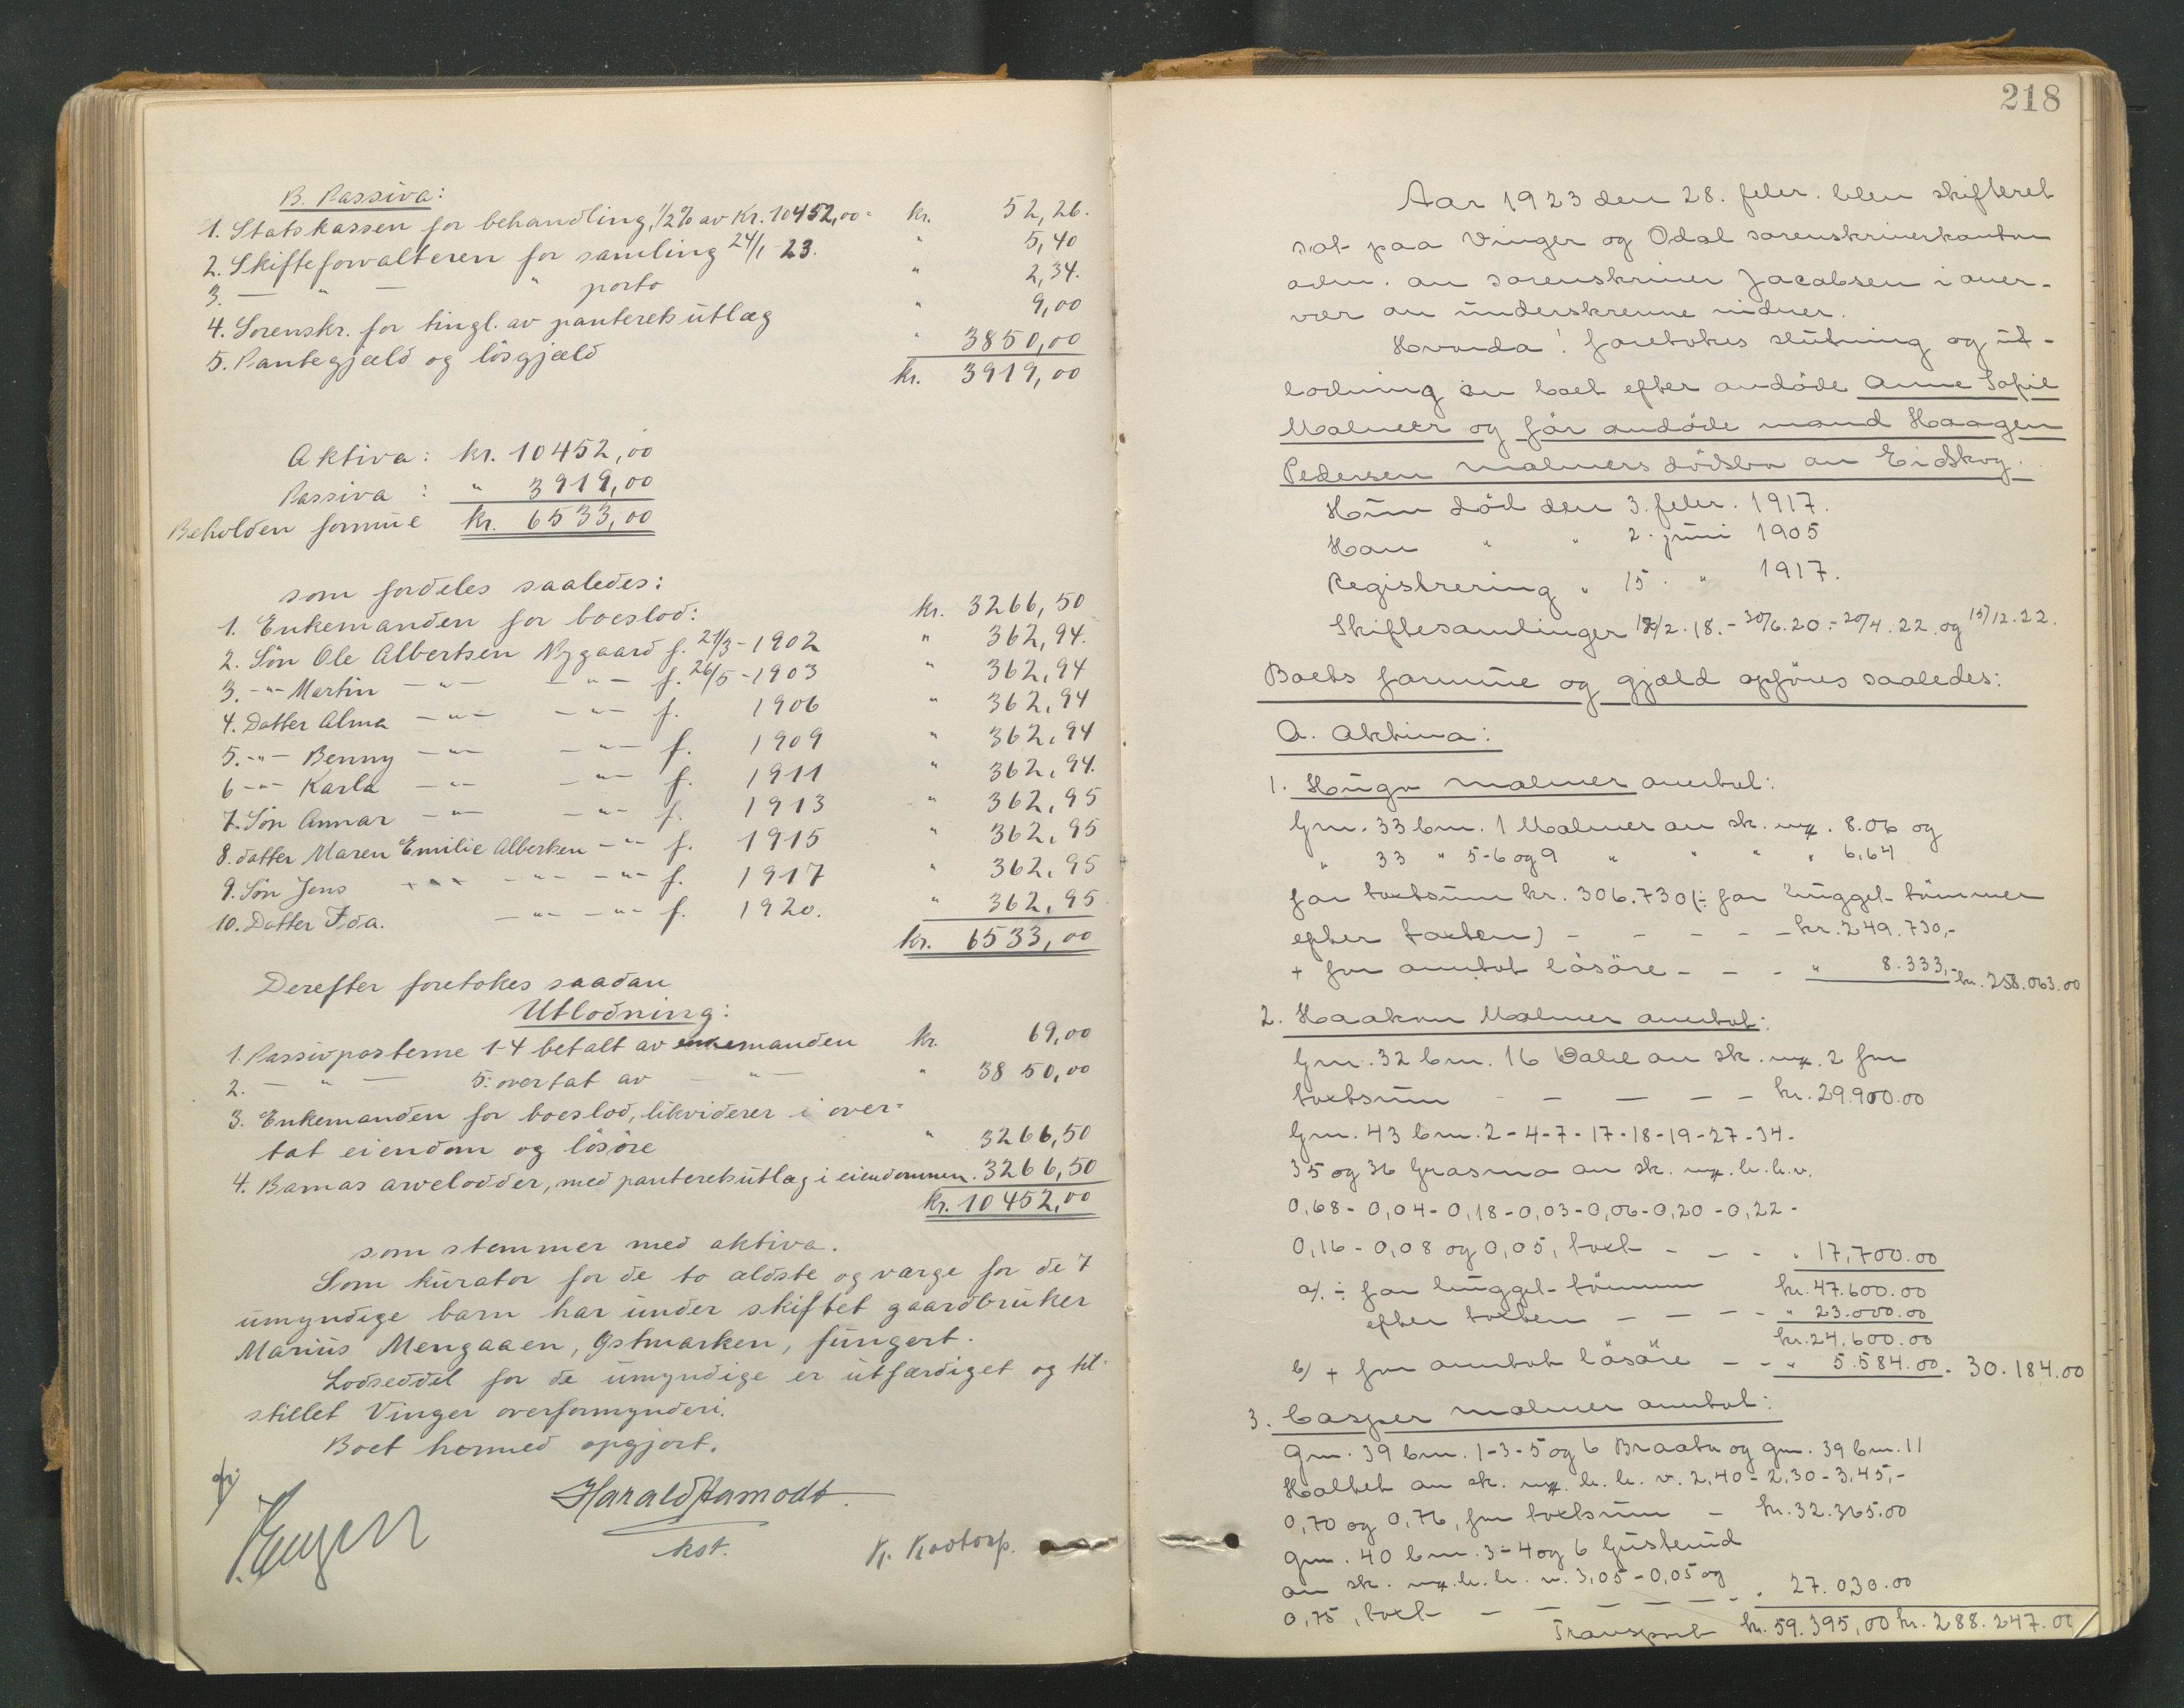 B. Passiva:
1. Statskassen for behandling, 1/2 % av Kr. 10452,00 = kr. 52,26.
2. Skifteforvalteren for samling 24/1 - 23. " 5,40
3. — " — " porto " 2,34.
4. Sorenskr. for tingl. av panteretsutlæg " 9,00
5. Pantegjæld og løsgjæld " 3850,00
kr. 3919,00
Aktiva: kr. 10452,00
Passiva: " 3919,00
Beholden formue kr. 6533,00
som fordeles saaledes:
1. Enkemanden for boeslod: kr. 3266,50
2. Søn Ole Albertsen Nygaard f. 21/3 - 1902 " 362,94.
3. -"- Martin -"- -"- f. 26/5 - 1903 " 362,94
4. Datter Alma -"- -"- f. 1906 " 362,94
5. -"- Benny -"- -"- f. 1909 " 362,94
6 -"- Karla -"- -"- f. 1911 " 362,94.
7. Søn Annar -"- -"- f. 1913 " 362,95
8. datter Maren Emilie Albertsen -"- f. 1915 " 362,95
9. Søn Jens -"- -"- f. 1917 " 362,95
10. Datter Ida. -"- -"- f. 1920. " 362,95.
kr. 6533,00
Derefter foretokes saadan
Utlodning:
1. Passivposterne 1-4 betalt av enkemanden kr. 69,00
2. — " — 5: overtat av — " — " 3850,00
3. Enkemanden for boeslod, likviderer i over=
tat eiendom og løsøre " 3266,50
4. Barnas arvelodder, med panteretsutlæg i eiendommen. 3266,50
kr. 10452,00
som stemmer med aktiva.
Som kurator for de to ældste og værge for de 7
umyndige barn har under skiftet gaardbruker
Marius Mengaaen, Østmarken, fungert.
Lodseddel for de umyndige er utfærdiget og til-
stillet Vinger overformynderi.
Boet hermed opgjort.
Harald Aamodt
kst.
K. Kovtorp.
218
Aar 1923 den 28. febr. blev skifteret
sat paa Vinger og Odal sorenskriverkontor
adm. av sorenskriver Jacobsen i over-
vær av underskrevne vidner.
Hvorda! foretokes slutning og ut-
lodning av boet efter avdøde Anne Sofie
Malmer og før avdøde mand Haagen
Pedersen Malmers dødsbo av Eidskog.
Hun død den 3. febr. 1917.
Han " " 2. juni 1905
Registrering " 15. " 1917.
Skiftesamlinger 12/2.18. - 30/6.20 - 20/4.22. og 15/12.22.
Boets formue og gjæld opføres saaledes:
A. Aktiva:
1. Hugo Malmer overtat:
Gnr. 33 bnr. 1 Malmer av sk. mk. 8.06 og
" 33 " 5-6 og 9 " " " " 6,64
for takstsum kr. 306.730 (÷ for hugget tømmer
efter taksten) - - - - - kr. 249.730,-
+ for overtat løsøre - - - " 8.333,- kr. 258.063.00
2. Haakon Malmer overtat:
Gnr. 32 bnr. 16 Dale av sk. mk. 2 for
takstsum - - - - - kr. 29.900.00
Gnr. 43 bnr. 2-4-7-17-18-19-27-34-
35 og 36 Grasmo av sk. mk. h.h.v.
0,68 - 0,04 - 0,18 - 0,03 - 0,06 - 0,20 - 0,22 -
0,16 - 0,08 og 0,05, takst - - - " 17,700.00
a/. ÷ for hugget tømmer kr. 47.600.00
efter taksten - - - - " 23.000.00
kr. 24.600.00
b/ + for overtat løsøre - - " 5.584.00 - 30.184.00
3. Casper Malmer overtat:
Gnr. 39 bnr. 1-3-5 og 6 Braate og gnr. 39 bnr. 11
Holtet av sk. mk. h.h.v. 2,40 - 2,30 - 3,45,-
0,70 og 0,76, for takstsum - kr. 32.365.00
Gnr. 40 bnr. 3-4 og 6 Gusterud
av sk. mk. h.h.v. 3,05 - 0,05 og
0,75, takst - - - - - - " 27.030.00
Transport kr. 59.395,00 kr. 288.247.00